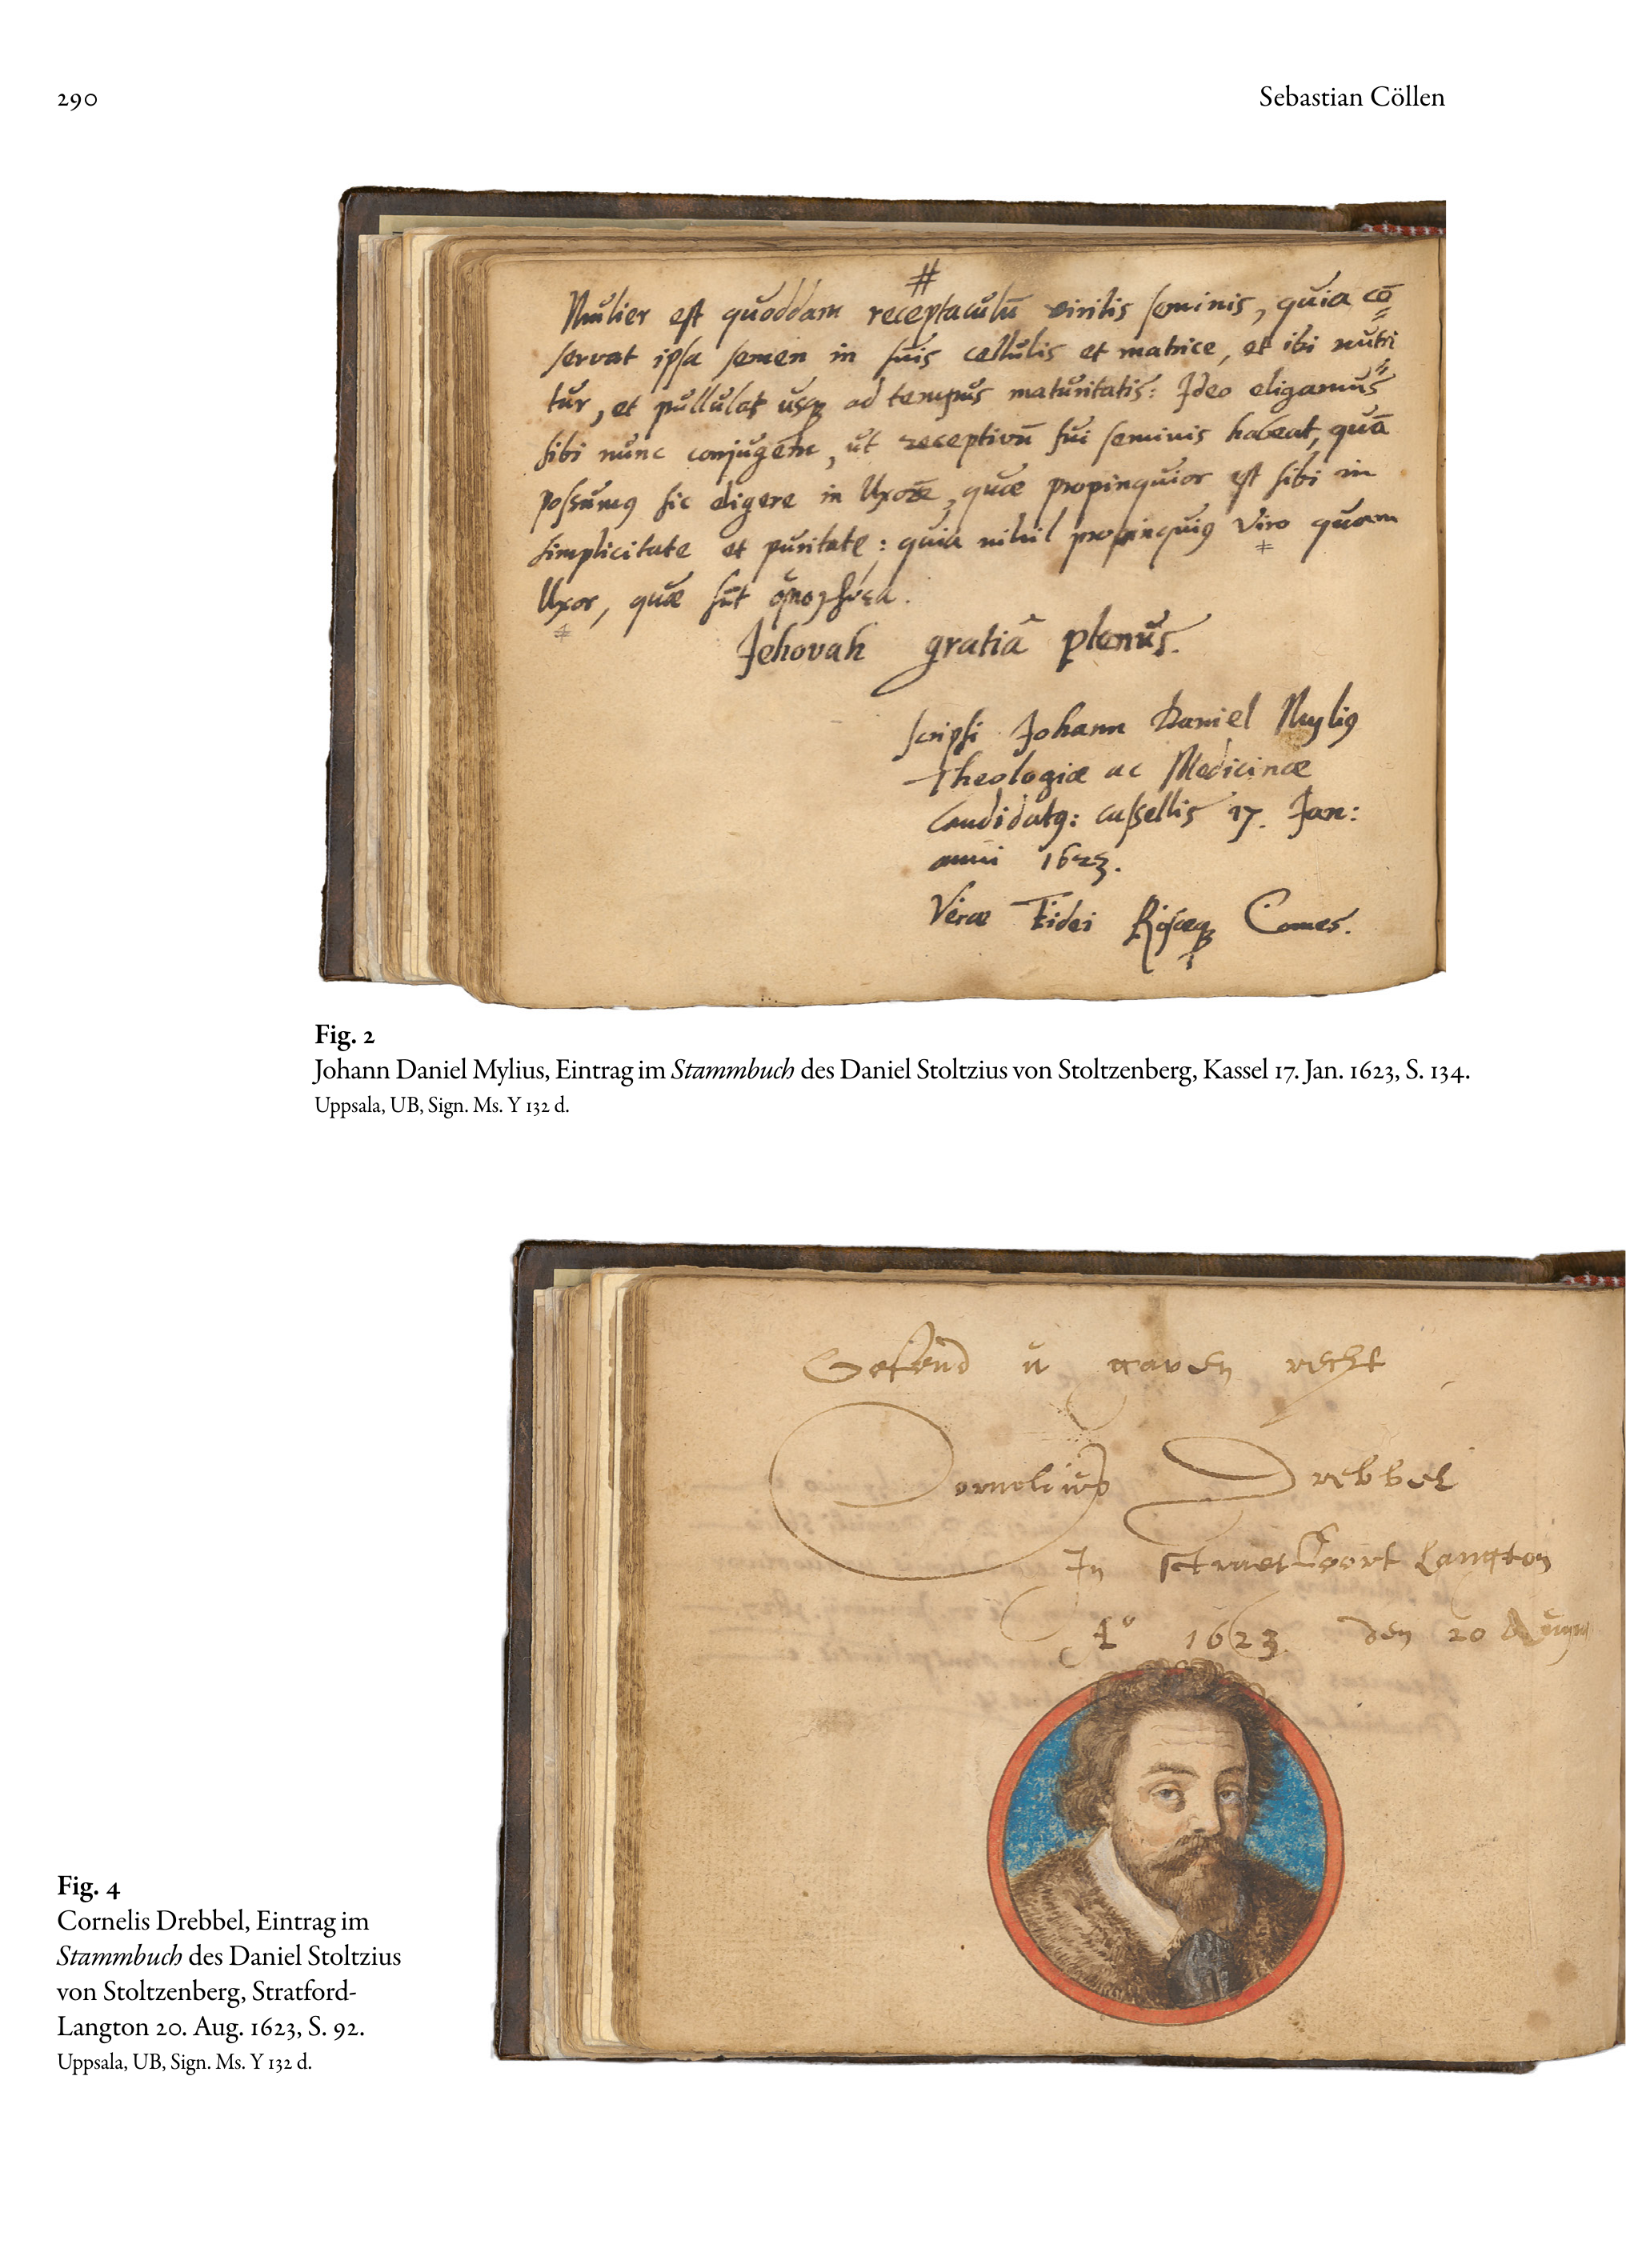 290
Sebastian Cöllen
#
Mulier est quoddam receptaculū virilis seminis, quia cō=
servat ipsa semen in suis cellulis et matrice, et ibi nutri=
tur, et pullulat usq ad tempus maturitatis: Ideo eligamus
sibi nunc conjugem, ut receptivū sui seminis habeat, quā
possumus sic eligere in Uxore, quæ propinquior est sibi in
simplicitate et puritate: quia nihil propinquius Viro quam
Uxor, quæ sūt
Jehovah gratiâ plenus.
scripsi Johann Daniel Mylius
Theologiæ ac Medicinæ
Candidatus: Cassellis 17. Jan:
anni 1623.
Veræ Fidei Comes.
Fig. 2
Johann Daniel Mylius, Eintrag im Stammbuch des Daniel Stoltzius von Stoltzenberg, Kassel 17. Jan. 1623, S. 134.
Uppsala, UB, Sign. Ms. Y 132 d.
recht
Cornelius Drebbel
In Langton
1623 den 20
Fig. 4
Cornelis Drebbel, Eintrag im
Stammbuch des Daniel Stoltzius
von Stoltzenberg, Stratford-
Langton 20. Aug. 1623, S. 92.
Uppsala, UB, Sign. Ms. Y 132 d.